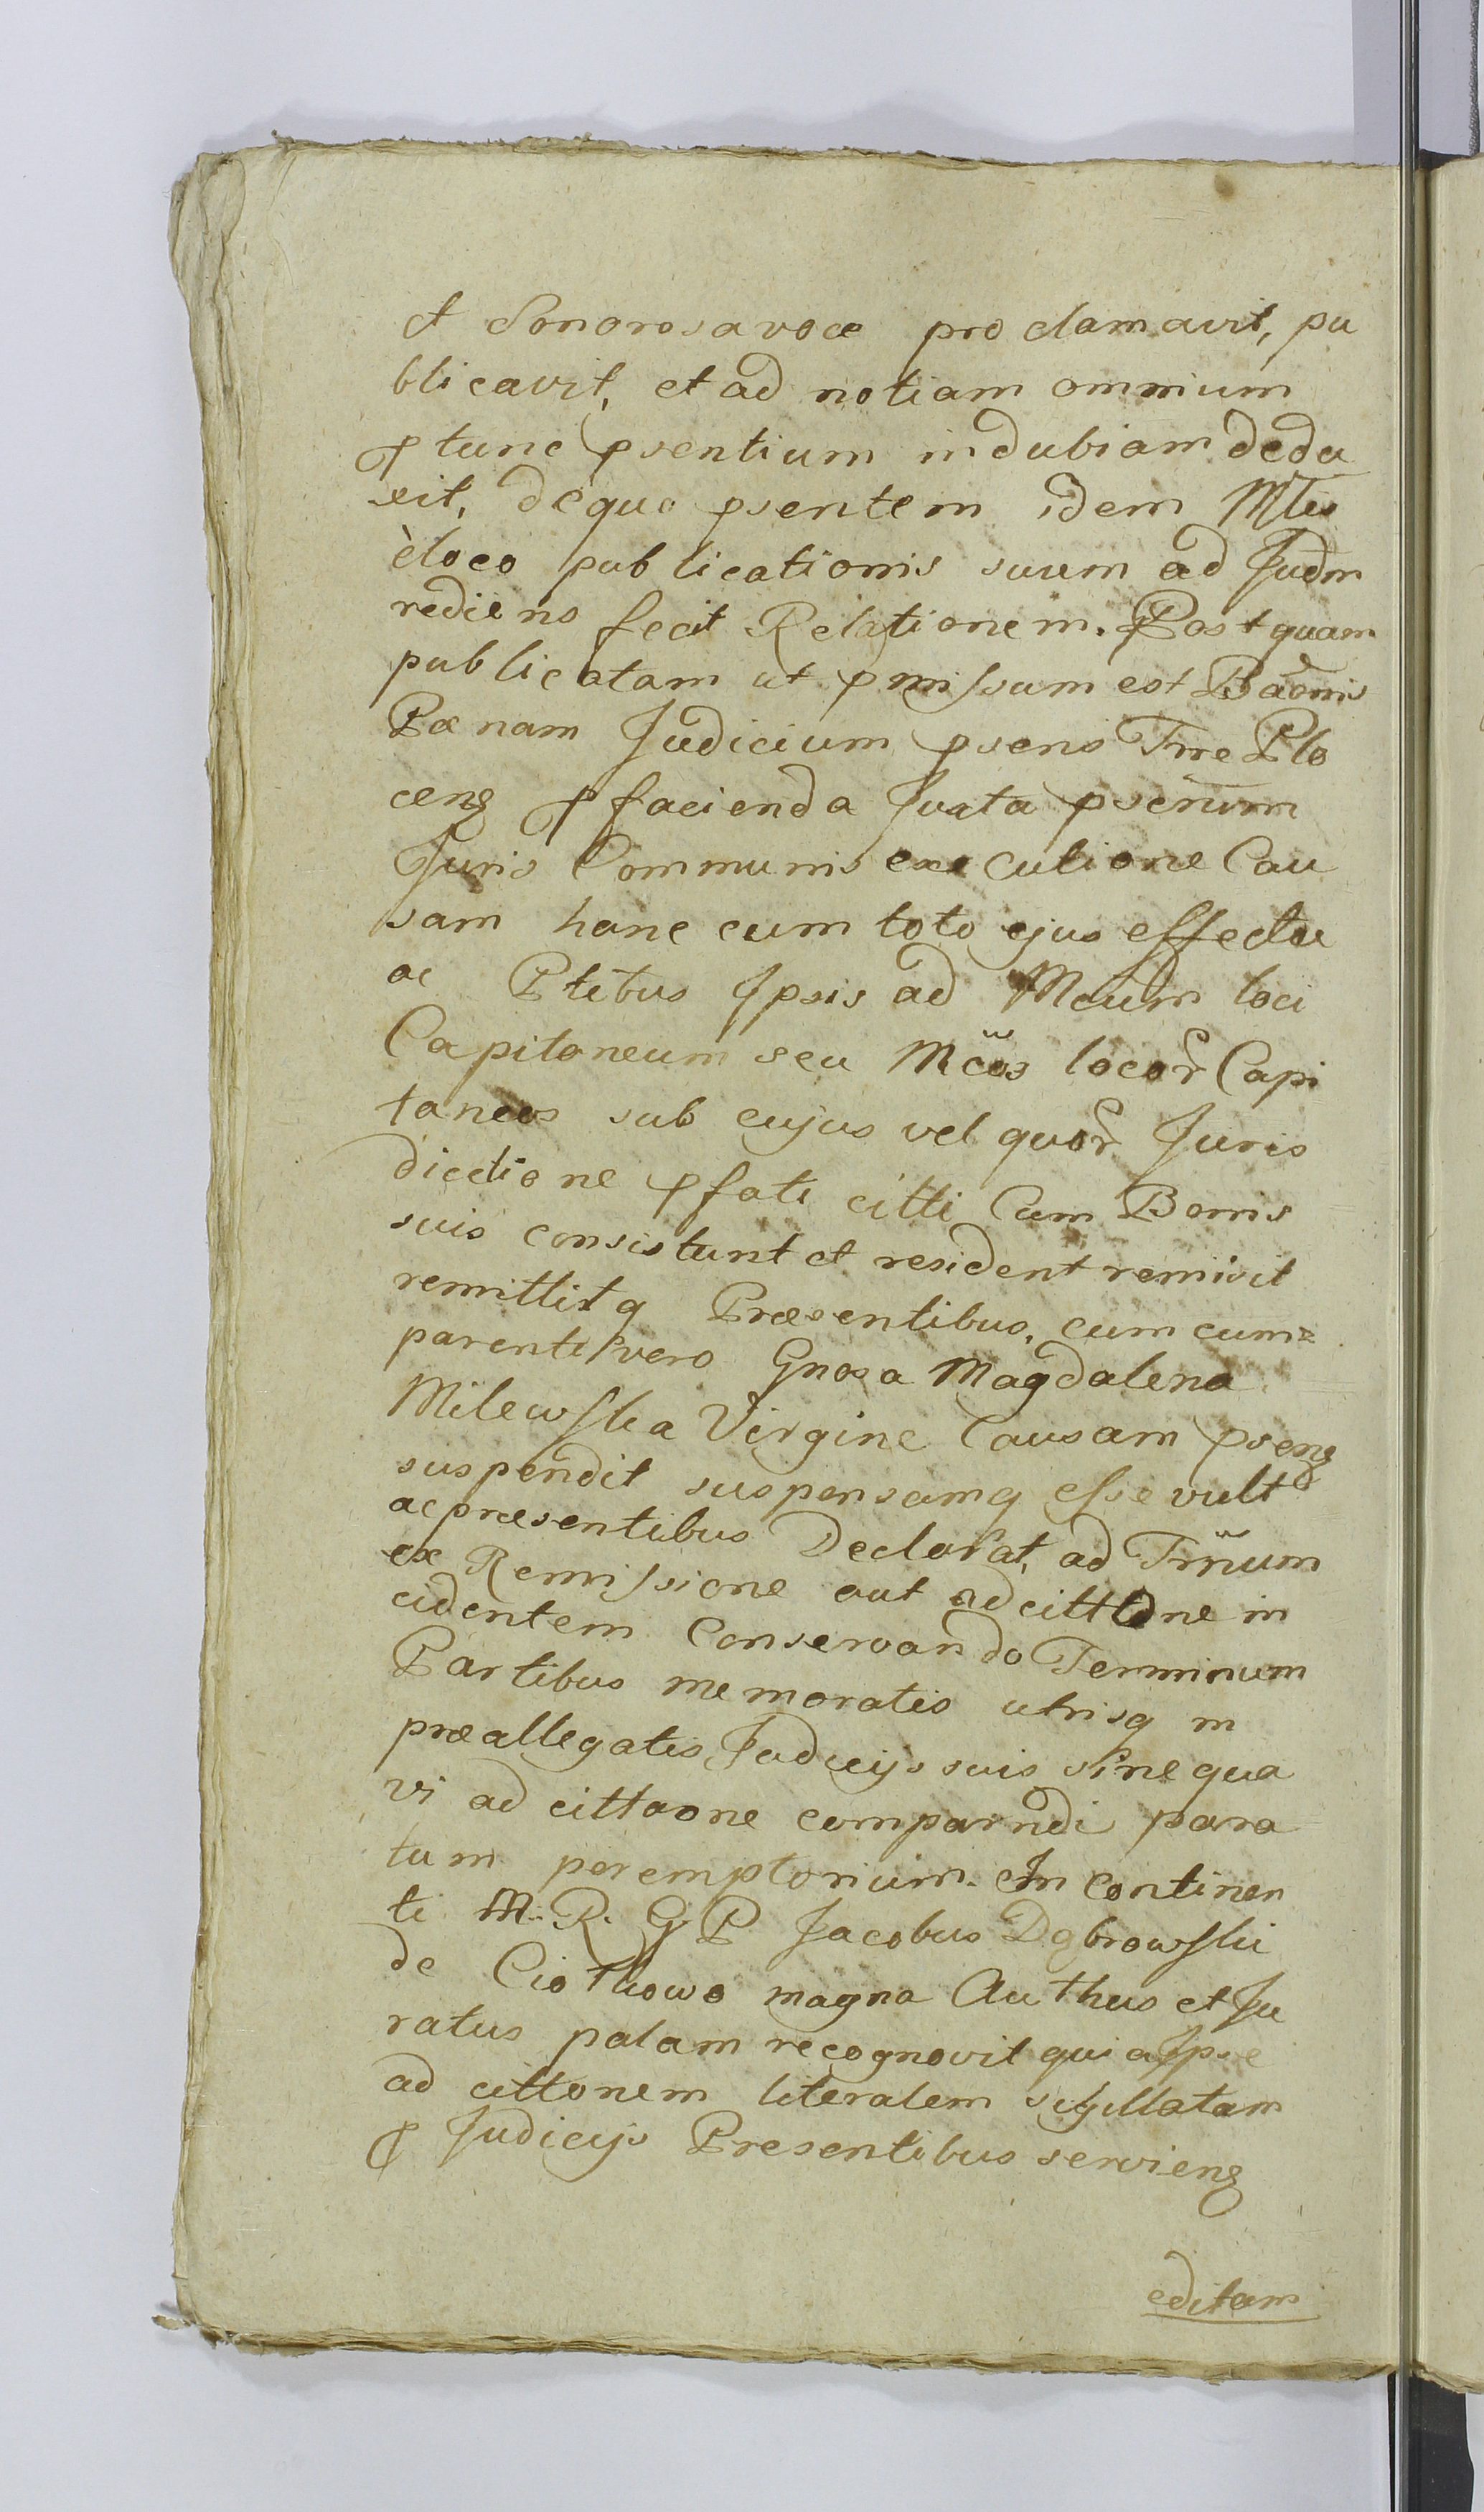 et Sonorosa voce proclamavit, pu
blicavit, et ad notiam omnium
p tunc psentium indubiam dedu
xit, de quo psentem idem Mlis
è loco publicationis suum ad Judm
rediens fecit Relationem. Post quam
publicatam ut pmissum est Baonis
Pœnam Judicium psens Trre Plo
ceng p facienda Juxta pscrium
Juris Communis executione Cau
sam hanc cum toto ejus effectu
ac Ptibus Ipsis ad Mcum loci
Capitaneum seu Mcos locor Capi
taneos sub cujus vel quor Juris
dicctione pfati citti Cum Bonis
suis consistunt et resident remisit
remittitq Præsentibus, cum cum=
parente vero Gnosa Magdalena
Milewska Virgine Causam pseng
suspendit suspensamq esse vult
ac præsentibus Declarat, ad Trnum
ex Remissione aut adcittone in
cidentem Conservando Terminum
Partibus memoratis utrisq in
præallegatis Judicijs suis sine qua
vi ad cittaone comparndi para
tum peremptorium. In continen
ti M. R. G P Jacobus Dąbrowski
de Ciothowo magna Authus et Ju
ratus palam recognovit quia Ipse
ad cittonem literalem sigillatam
p Judicijs Presentibus servieng
editam